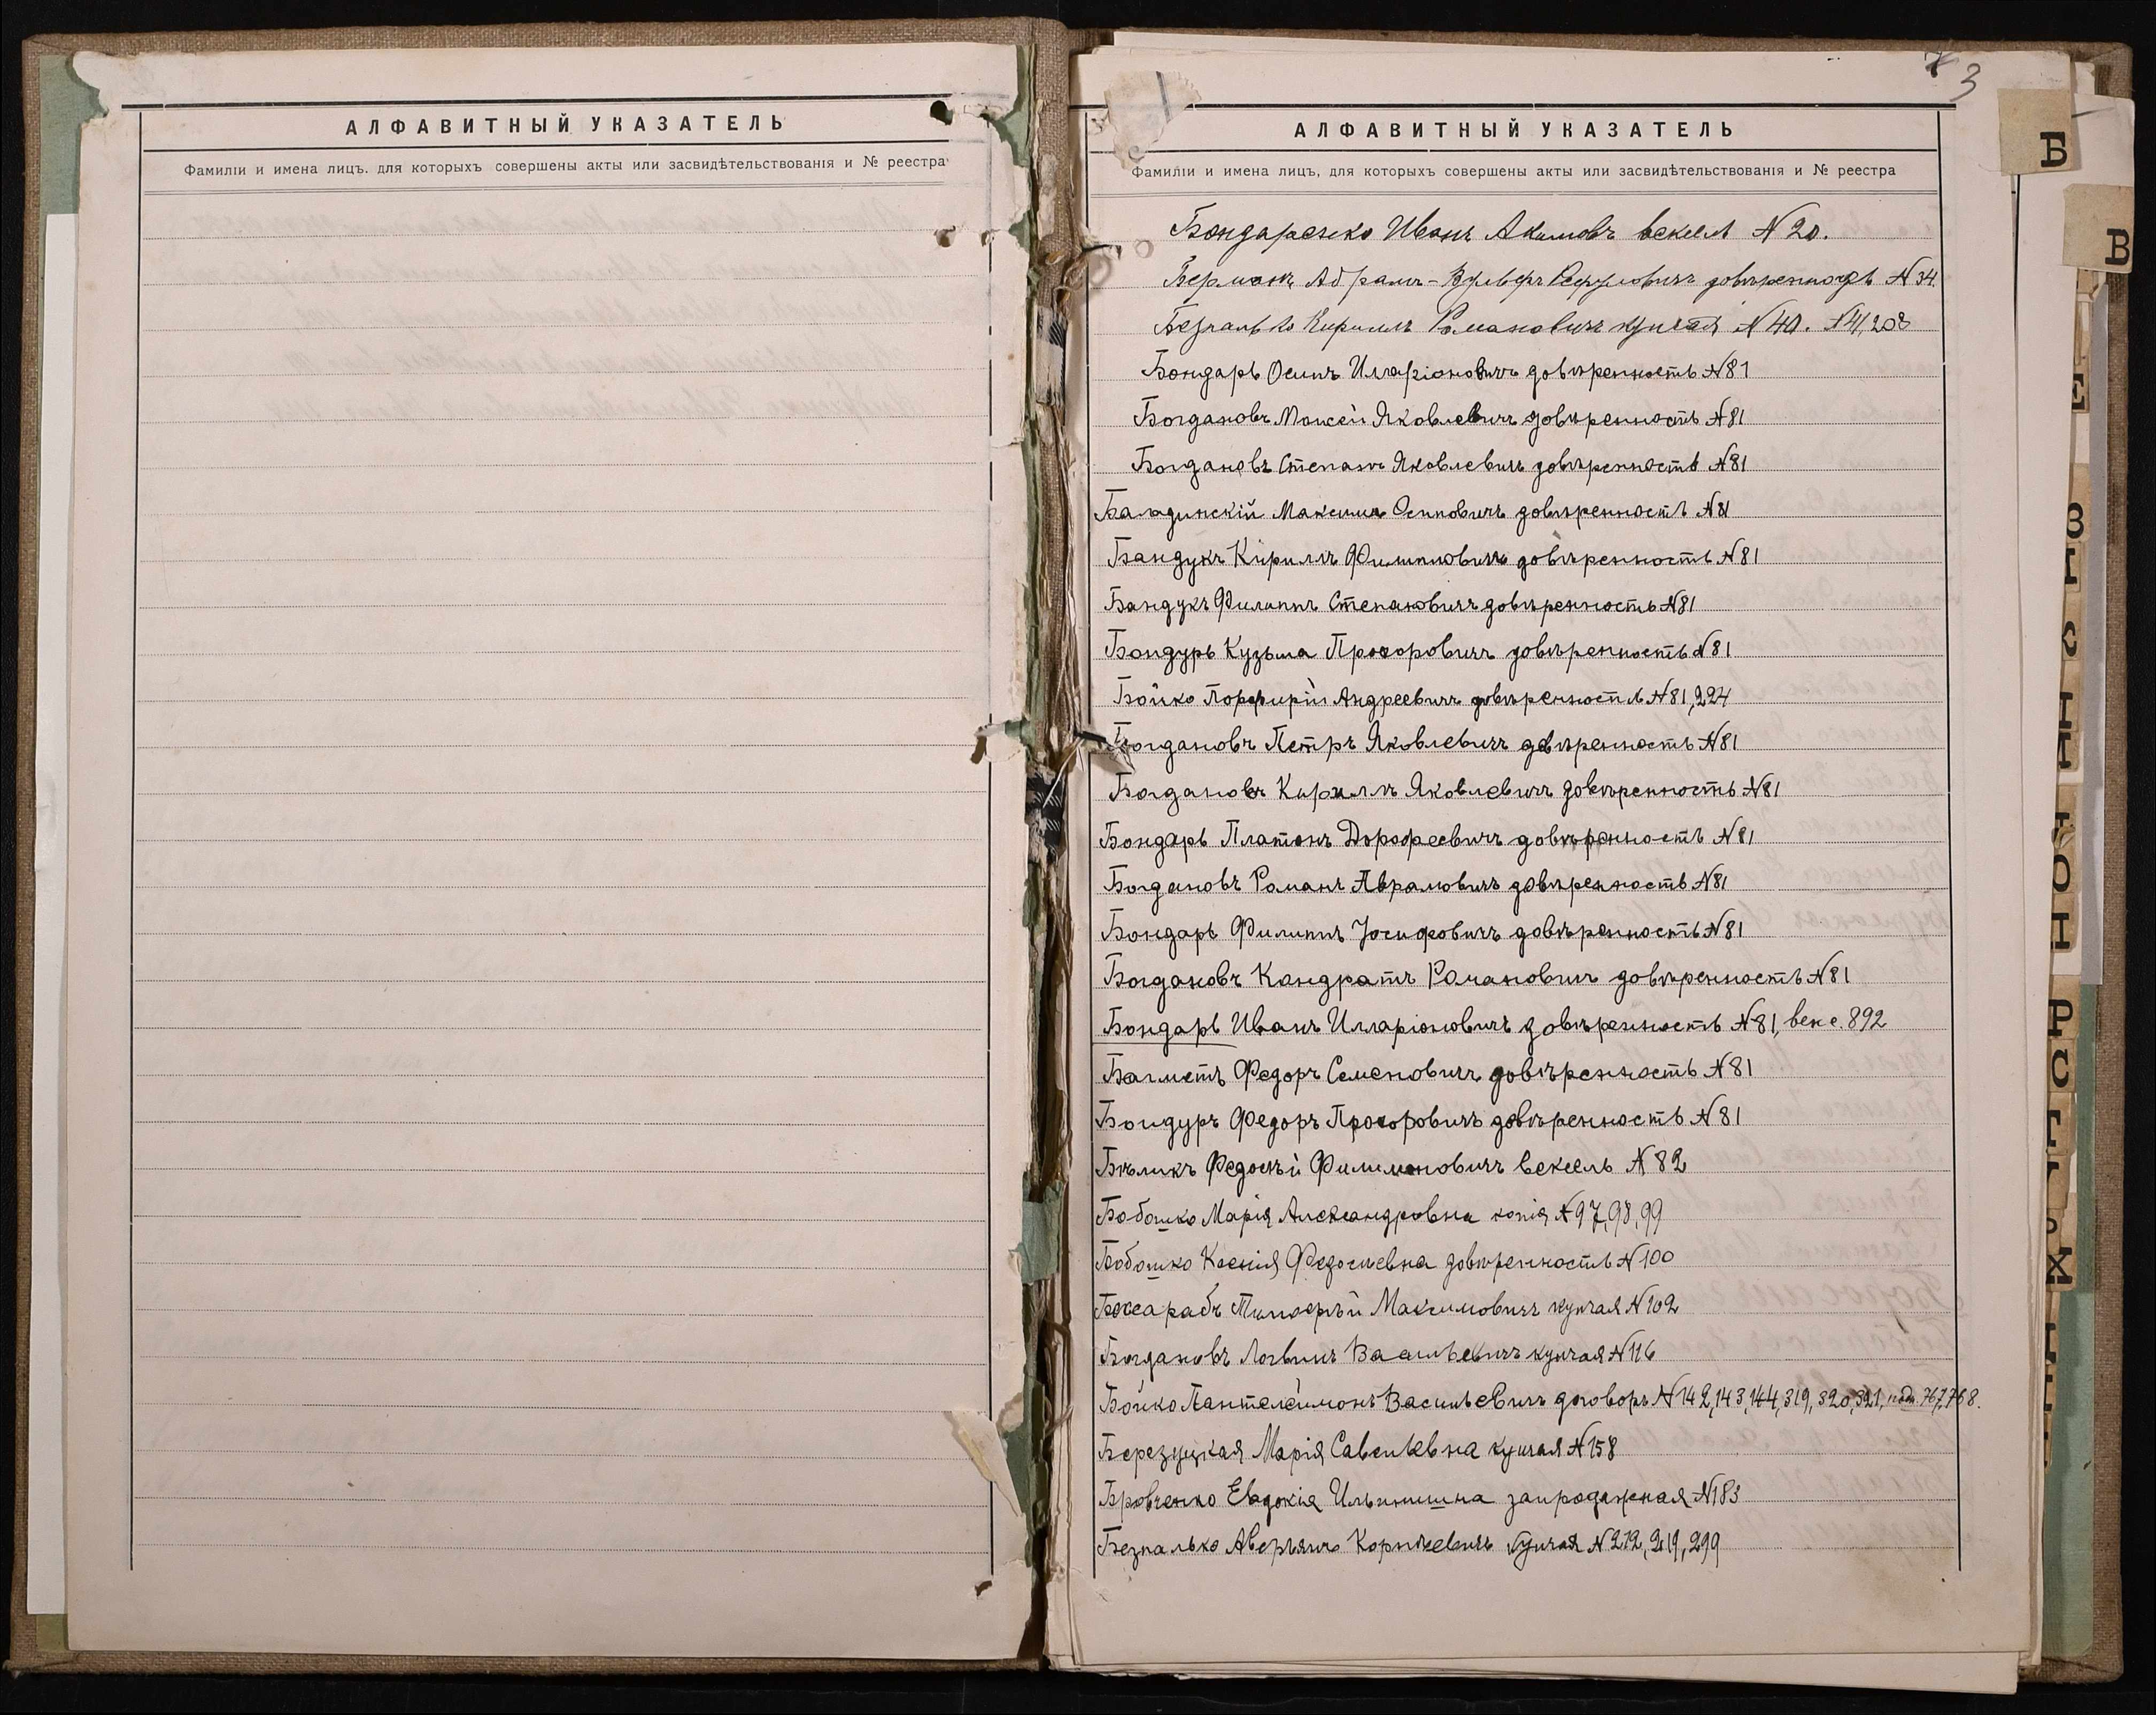 АЛФАВИТНЫЙ УКАЗАТЕЛЬ
Фамиліи и имена лицъ. для которыхъ совершены акты или засвидѣтельствованія и № реестра
3
АЛФАВИТНЫЙ УКАЗАТЕЛЬ
Фамиліи и имена лицъ, для которыхъ совершены акты или засвидѣтельствованія и № реестра
Бондаренко Иванъ Акимовъ вексель № 20.
Берманъ Абрамъ-Вульфъ довѣренность № 34.
Безпалько Кириллъ Романовичъ купчая № 40. № 41, 208
Бондарь Осипъ Илларіоновичъ довѣренность № 81
Богдановъ Моисей Яковлевичъ довѣренность № 81
Богдановъ Степанъ Яковлевичъ довѣренность № 81
Максимъ Осиповичъ довѣренность № 81
Бандукъ Кириллъ Филипповичъ довѣренность № 81
Бандукъ Филиппъ Степановичъ довѣренность № 81
Бондурь Кузьма Прохоровичъ довѣренность № 81
Бойко Порфирій Андреевичъ довѣренность № 81, 224
Богдановъ Петръ Яковлевичъ довѣренность № 81
Богдановъ Кириллъ Яковлевичъ довѣренность № 81
Бондарь Платонъ Дорофеевичъ довѣренность № 81
Богдановъ Романъ Аврамовичъ довѣренность № 81
Бондарь Филиппъ Іосифовичъ довѣренность № 81
Богдановъ Кандратъ Романовичъ довѣренность № 81
Бондарь Иванъ Илларіоновичъ довѣренность № 81, векс. 892
Багметъ Федоръ Семеновичъ довѣренность № 81
Бондуръ Федоръ Прохоровичъ довѣренность № 81
Бѣликъ Федосѣй Филимоновичъ вексель № 82
Бобошко Марія Александровна копія № 97, 98, 99
Бобошко Ксенія Федосѣевна довѣренность № 100
Бессарабъ Тимофѣй Максимовичъ купчая № 102
Богдановъ Логвинъ Васильевичъ купчая № 116
Бойко Пантелеймонъ Васильевичъ договоръ № 142, 143, 144, 319, 320, 321, 767, 768.
Березуцкая Марія Савельевна купчая № 158
Бровченко Евдокія Ильинишна запродажная № 183
Безпалько Аверьянъ Корнѣевичъ купчая № 212, 219, 299
Б
В
Е
З
І
Н
О
Р
С
Х